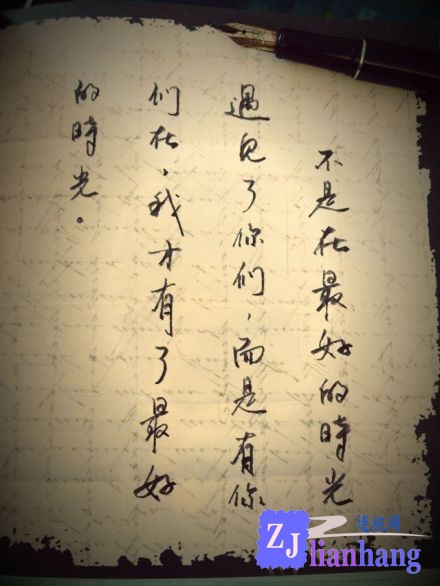 不是在最好的時光
遇見了你们，而是有你
们在，我才有了最好
的時光。
ZJ
lianhang